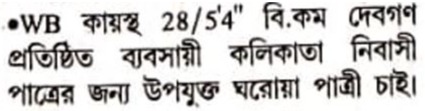 •WB কায়স্থ 28/5'4" বি.কম দেবগণ
প্রতিষ্ঠিত ব্যবসায়ী কলিকাতা নিবাসী
পাত্রের জন্য উপযুক্ত ঘরোয়া পাত্রী চাই।